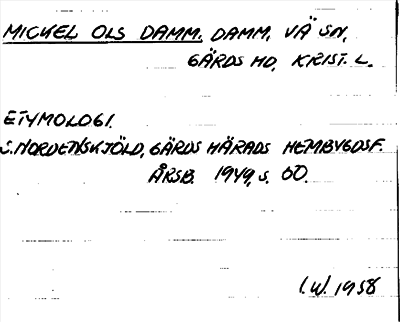 MICKEL OLS DAMM. DAMM, VÄ SN,
GÄRDS HD, KRIST. L.
ETYMOLOGI.
S. NORDENSKJÖLD, GÄRDS HÄRADS HEMBYGDSF.
ÅRSB. 1949, s. 60.
I.W. 1958